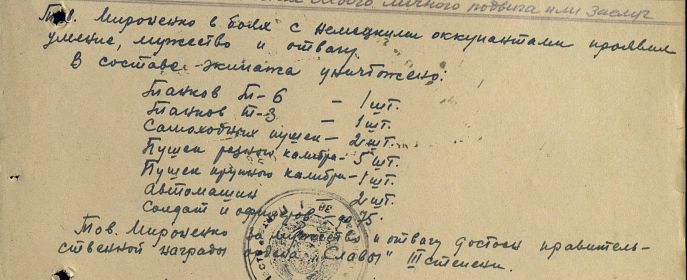 своего личного подвига или заслуг
Тов. Мироненко в боях с немецкими оккупантами проявил
умение, мужество и отвагу.
В составе экипажа уничтожено:
Танков Т-6 – 1 шт.
Танков Т-3 – 1 шт.
Самоходных пушек – 2 шт.
Пушек разного калибра – 5 шт.
Пушек крупного калибра – 1 шт.
Автомашин 2 шт.
Солдат и офицеров до 25.
Тов. Мироненко за мужество и отвагу достоен правитель-
ственной награды ордена "Славы" III степени.